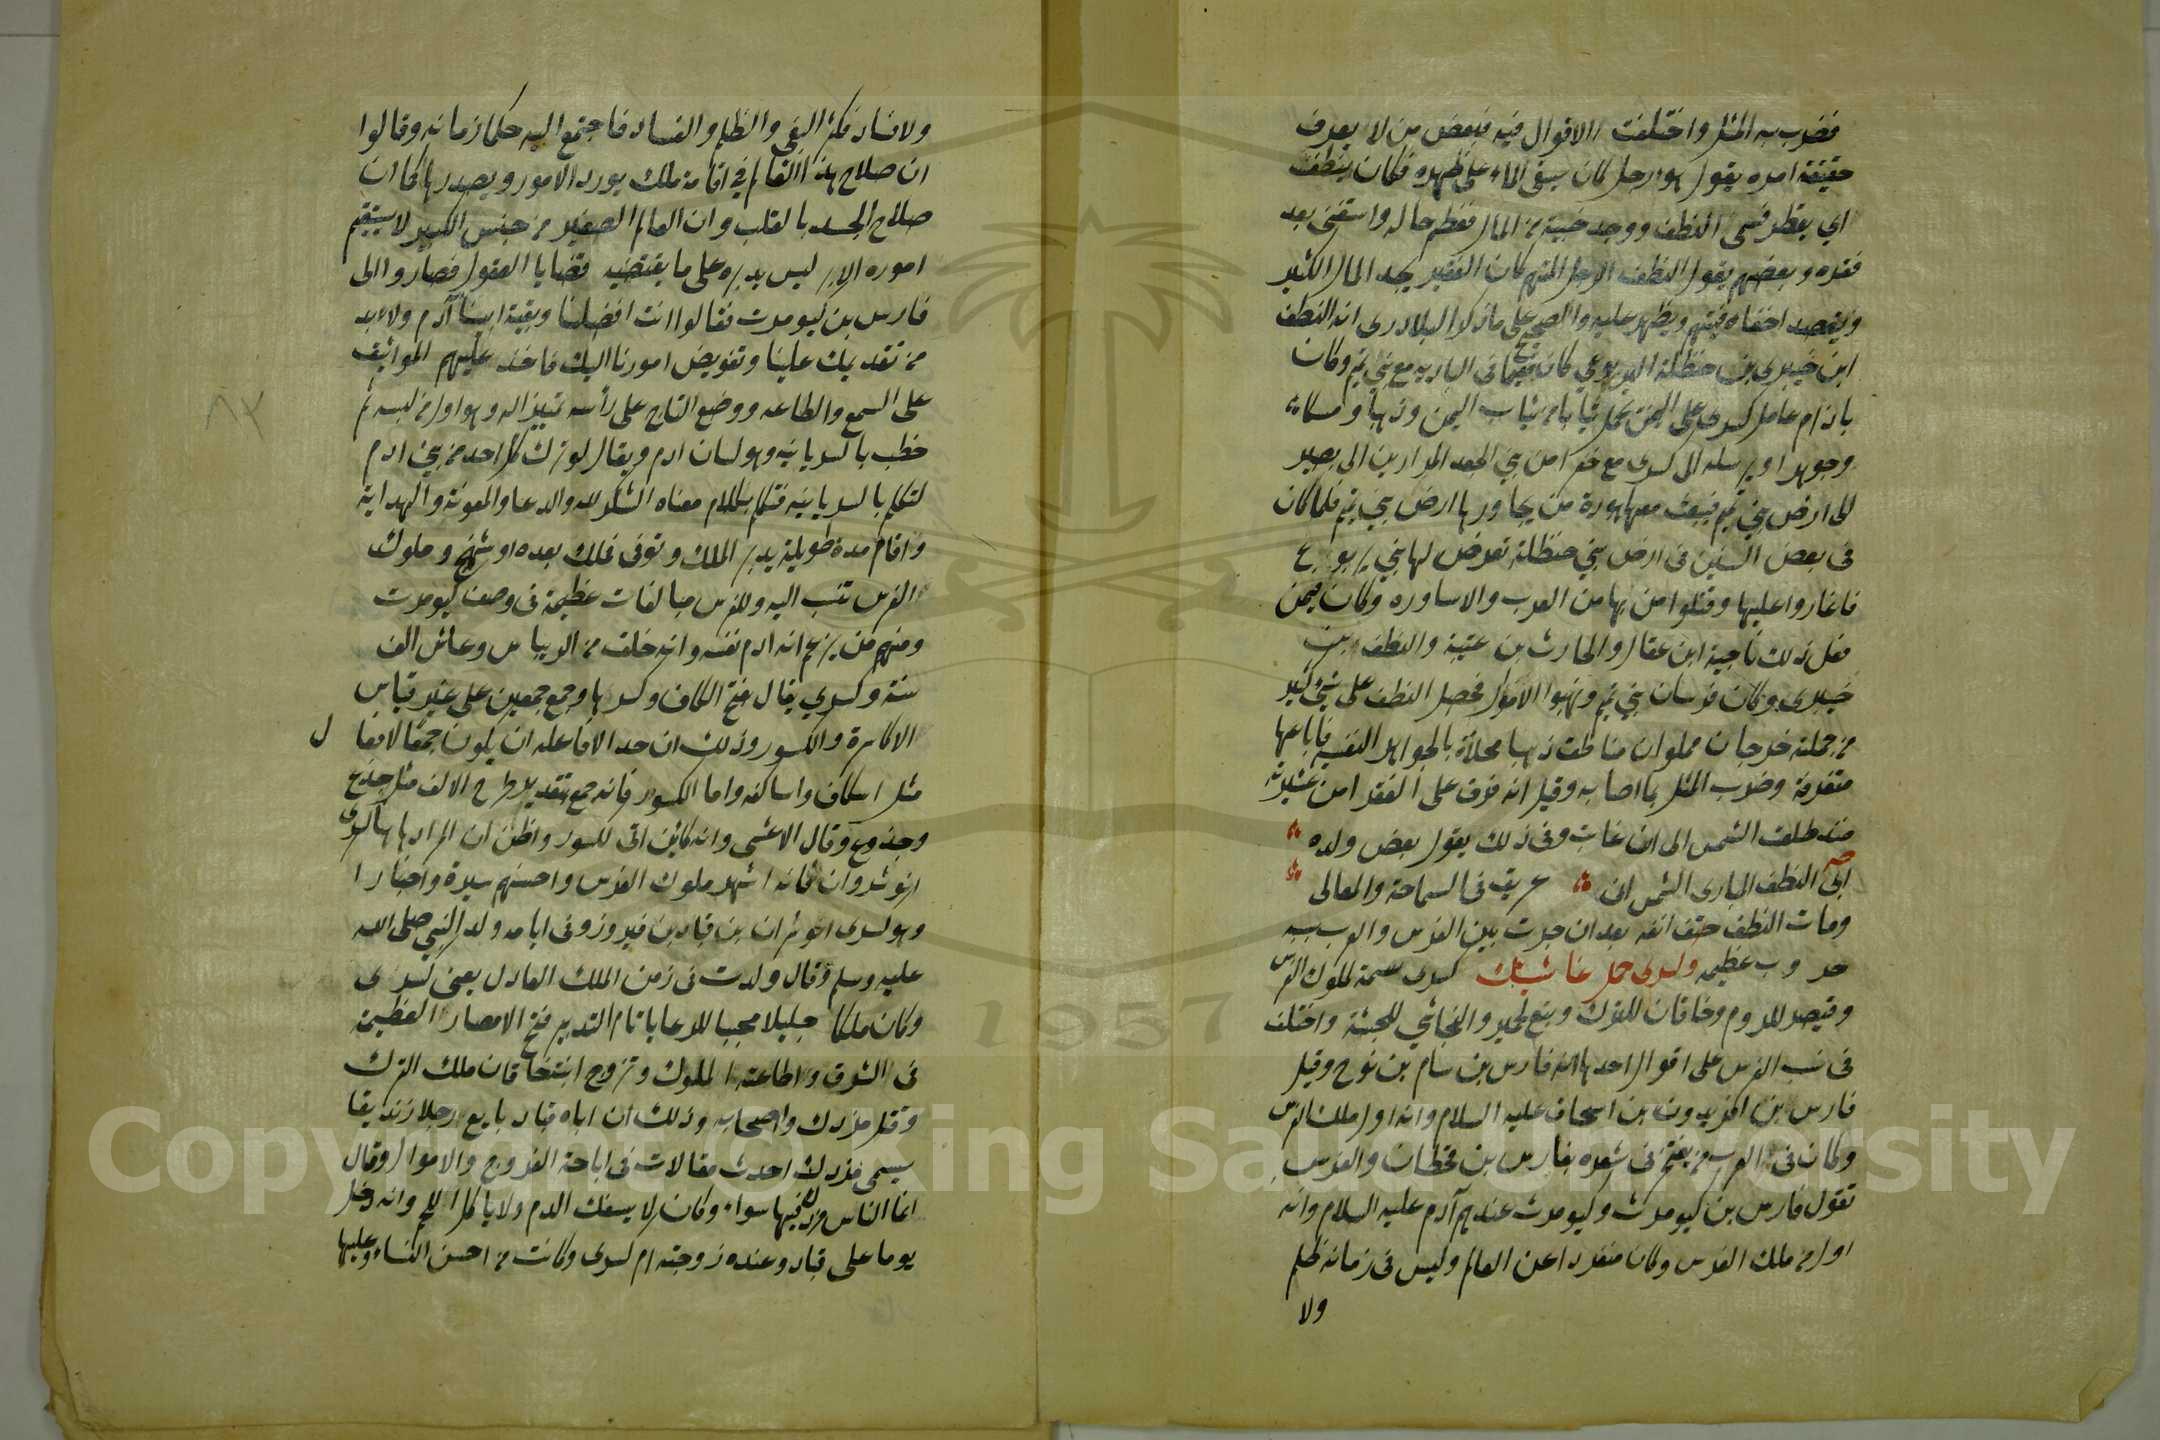 فضرب به المثل واختلفت الاقوال فيه فبعض من لا يعرف
حقيقة امره يقول هو رجل كان يسقى الماء على ظهره فكان ينطف
اي يقطر فسمى النطف ووجد خبية من المال فعظم حاله واستغنى بعد
فقره وبعضهم يقول النطف الرجل المتهم كان الفقير يجد المال الكثير
ويقصد اخفاه فيتهم ويظهر عليه والصحيح على ما ذكر البلادرى انه النطف
ابن خيبرى بن حنظلة اليربوعي كان مقيما فى البادية مع بني تميم وكان
باذام عامل كسرى على اليمن يحمل ثيابا من ثياب اليمن وذهبا ومسكا
وجوهرا ويرسله الى كسرى مع خفرا من بني الجعد المرادين الى يصير
الى ارض بني تميم فيبعث معها هوذة من يجاورها ارض بني تميم فلما كان
فى بعض السنين فى ارض بني حنظلة تعرض لها بني يربوع
فاغاروا عليها وقتلوا من بها من العرب والاساوره وكان فيمن
فعل ذلك ناجية ابن عقال والحارث بن عتبة والنطف بن
خيبرى وكان فرسان بني تميم ونهبوا الاموال فحصل النطف على شيء كثير
من جملته خرجان مملوان مناطقت ذهبا محلاة بالجواهر النفيسه فاباعها
متفرقة وضرب المثل بما اصابه وقيل انه فرق على الفقرا من عشيرته
منذ طلعت الشمس الى ان غابت وفى ذلك يقول بعض ولده
ابى النطف البارى الشمس انى عريق فى السماحة والمعالى
ومات النطف حتف انفه بعد ان جرت بين الفرس والعرب بسببه
حروب عظيمه وكسرى حمل غاشيتك كسرى سمة لملوك الفرس
وقيصر للروم وخاقان للترك وتبع لحمير والنجاشي للحبشة واختلف
فى نسب الفرس على اقوال احدها انه فارس بن سام بن نوح وقيل
فارس بن افريدون بن اسحاق عليه السلام وانه اول ملك الفرس
وكان فى العرب من يفتخر فى شعره بفارس بن قحطان والفرس
تقول فارس بن كيومرث وكيومرث عندهم آدم عليه السلام وانه
اول من ملك الفرس وكان منفردا عن العالم وليس فى زمانه ظلم
ولا
ولا فساد فكثر البغى والظلم والفساد فاجتمع اليه حكما زمانه وقالوا
ان صلاح هذا العالم في اقامة ملك يورد الامور ويصدرها كما ان
صلاح الجسد بالقلب وان العالم الصغير من جنس الكبير لا يستقيم
اموره الا برئيس يدبره على ما يقتضيه قضايا العقول فصاروا الى
فارس بن كيومرث فقالوا انت افضلنا وبقية ابينا آدم ولا بد
من تقديمك علينا وتفويض امورنا اليك فاخذ عليهم المواثيق
على السمع والطاعه ووضع التاج على رأسه تمييزا له وهو اول من لبسه ثم
خطب بالسريانيه وهو لسان ادم ويقال لو ترك كل احد من بني ادم
لتكلم بالسريانيه فتكلم بكلام معناه الشكر لله والدعا والمعونة والهداية
واقام مدة طويلة يدبر الملك وتوفى فملك بعده اوشهنج وملوك
الفرس تنسب اليه وللفرس مبالغات عظيمة فى وصف كيومرث
ومنهم من يزعم انه ادم نفسه وانه خلق من الريباس وعاش الف
سنة وكسري يقال بفتح الكاف وكسرها وجمع جمعين على غير قياس
الاكاسرة والكسور وذلك ان حد الافاعله ان يكون جمعا لافعال
مثل اسكاف واساكفه واما الكسور فانه جمع بتقدير طرح الالف مثل جذع
وجذوع وقال الاعشى وانه كاين اتى للكسور واظن ان المراد هاهنا كسرى
انوشروان فانه اشهر ملوك الفرس واحسنهم سيرة واخبارا
وهو كسرى انوشران بن قباد بن فيروز وفى ايامه ولد النبي صلى الله
عليه وسلم وقال ولدت فى زمن الملك العادل يعنى كسرى
وكان ملكا جليلا محببا للرعايا تام التدبير فتح الامصار العظيمة
فى الشرق واطاعته الملوك وتزوج ابنت خاقان ملك الترك
وقتل مزدك واصحابه وذلك ان اباه قباد بايع رجلا زنديقا
يسمى مزدك احدث مقالات فى اباحة الفروج والاموال وقال
انما الناس فيها سواء وكان لا يسفك الدم ولا ياكل اللحم وانه دخل
يوما على قباد وعنده زوجته ام كسرى وكانت من احسن النساء وعليها
1957
Copyright © King Saud University